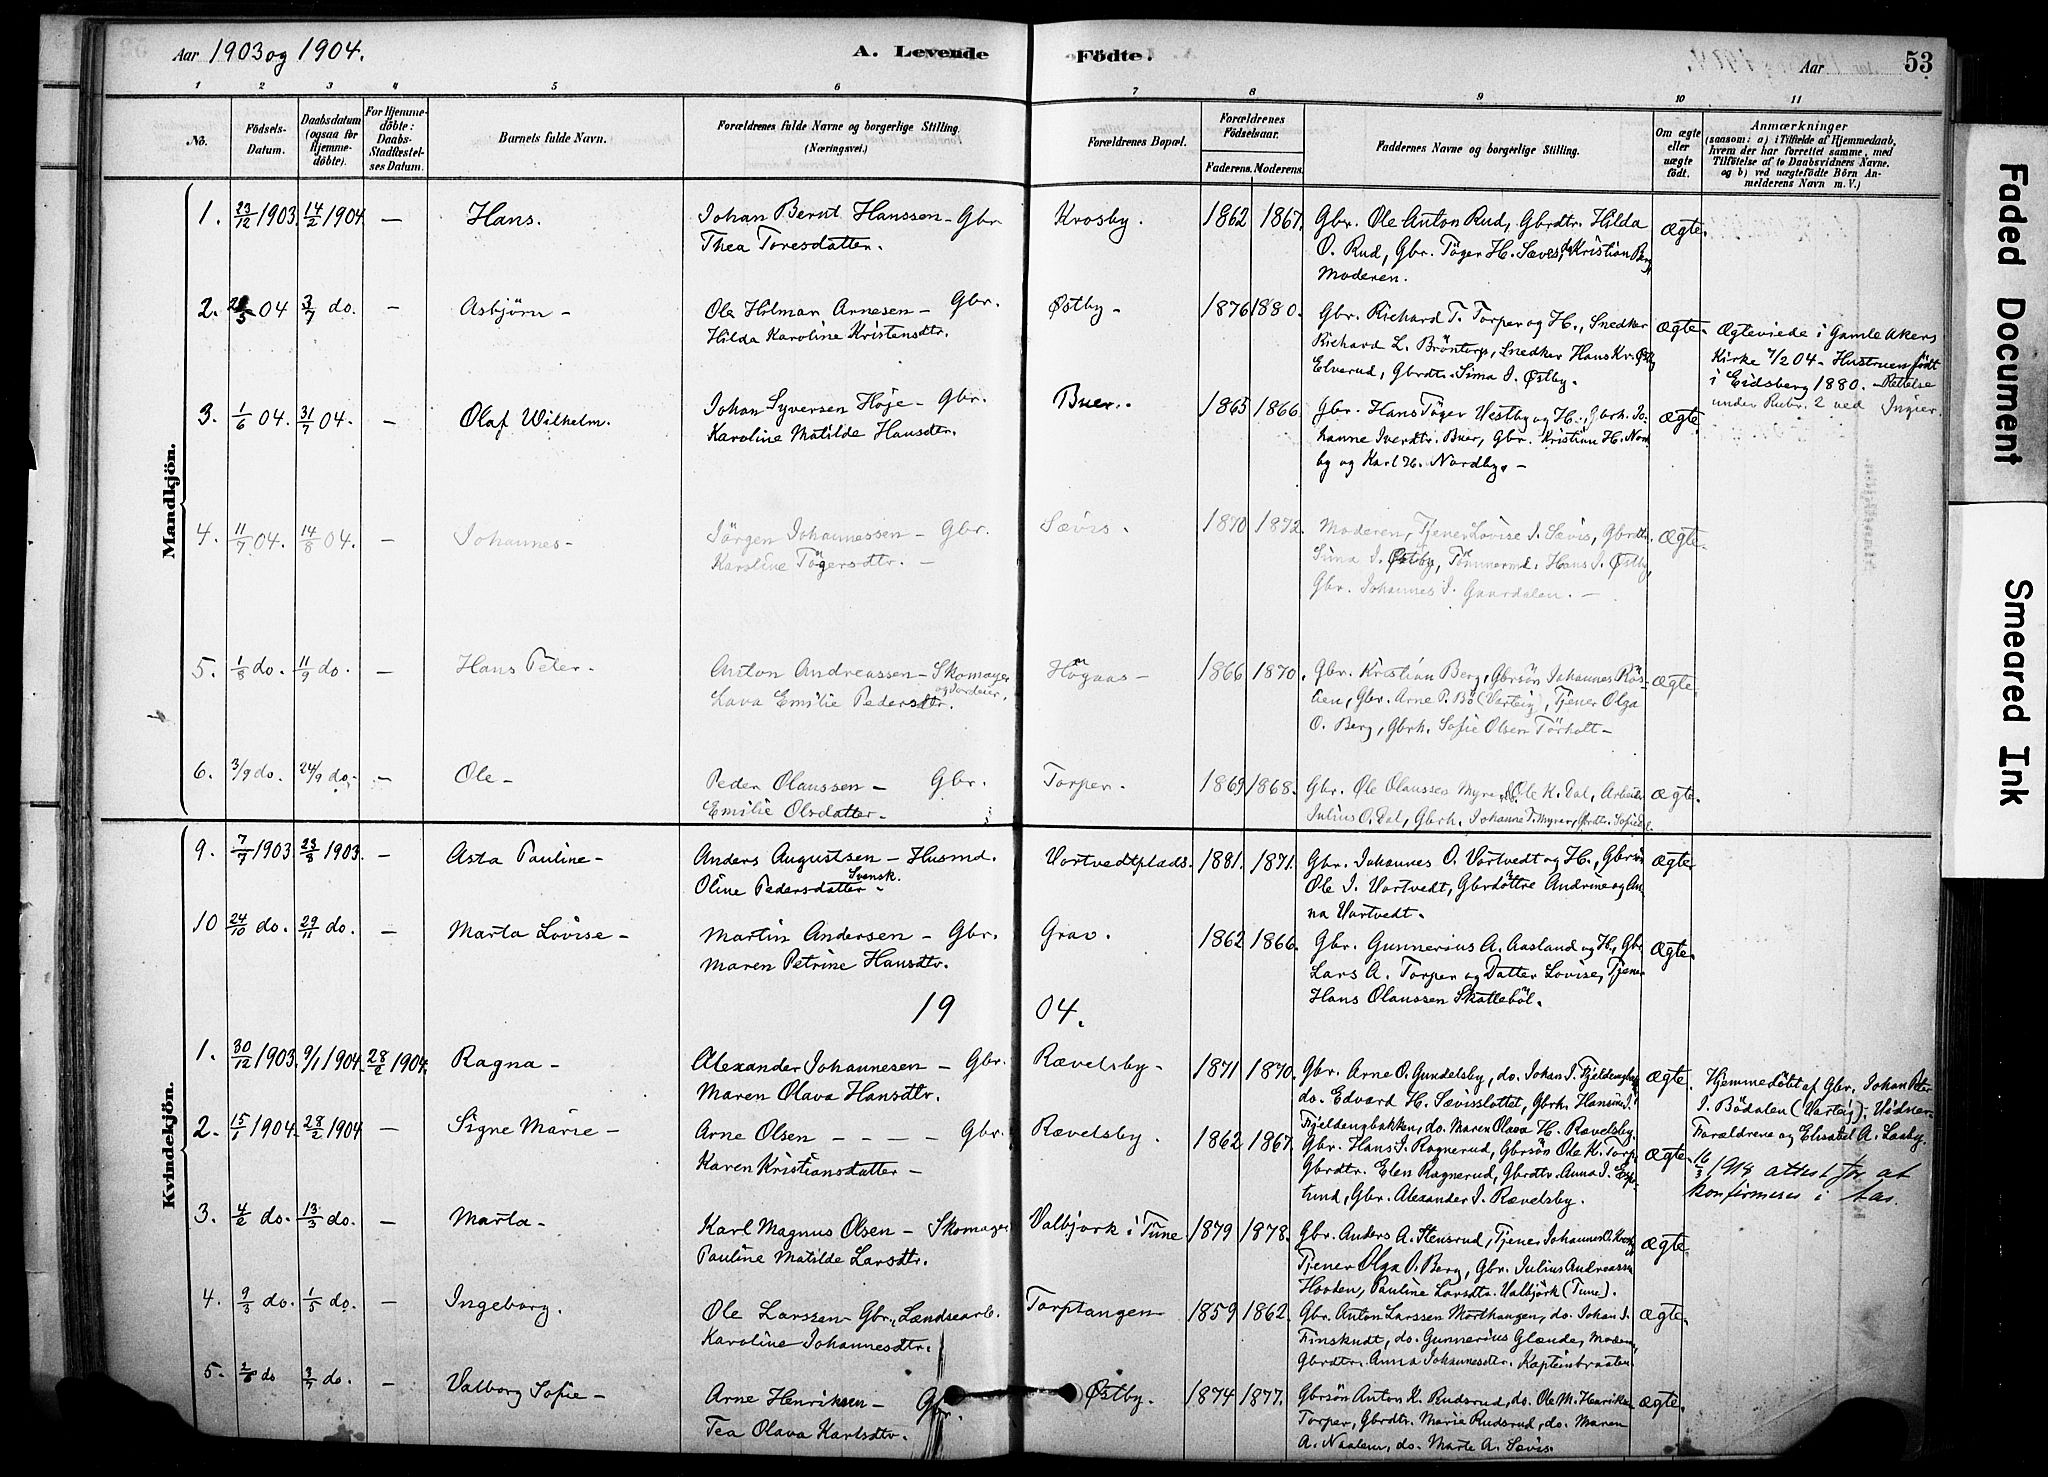 Aar 1903 og 1904.
A. Levende Födte.
Aar
53
1 2 3 4 5 6 7 8 9 10 11
No.
Födsels-Datum.
Daabsdatum (ogsaa for Hjemmedöbte).
For Hjemmedöbte: Daabs-Stadfæstelses Datum.
Barnets fulde Navn.
Forældrenes fulde Navne og borgerlige Stilling. (Næringsvei.)
Forældrenes Bopæl.
Forældrenes Födselsaar.
Faderens. Moderens.
Faddernes Navne og borgerlige Stilling.
Om ægte eller uægte födt.
Anmærkninger
(saasom: a) i Tilfælde af Hjemmedaab, hvem der har forrettet samme, med Tilföielse af to Daabsvidners Navne. og b) ved uægtefödte Börn Anmelderens Navn m. V.)
Mandkjön.
1. 23/12 1903. 14/2 1904 – Hans. Johan Bernt Hanssen – Gbr. Krosby. 1862 1867. Gbr. Ole Anton Rud, Gbrdtr. Hilda ægte.
Thea Toresdatter. O. Rud, Gbr. Töger H. Sævis, do Kristian Berg
Moderen.
2. 04 3/7 do. – Asbjörn – Ole Hilmar Arnesen – Gbr. Østby – 1876 1880. Gbr. Richard T. Torper og H., Snedker ægte. Ægteviede i Gamle Akers
Hilda Karoline Kristensdtr. Richard L. Bröntorp, Snedker Hans Kr. Østby Kirke 7/2 04 – Hustruen födt
Elverud, Gbrdtr. Sima I. Østby. i Eidsberg 1880. – Rettelse
under Rubr. 2 ved Ingier.
3. 1/6 04. 31/7 04. – Olaf Wilhelm. Johan Syversen Høje – Gbr. Buer. 1865 1866. Gbr. Hans Töger Vestby og H., Gbrk. Jo- ægte.
Karoline Matilde Hansdtr. hanne Iverdtr. Buer, Gbr. Kristian H. Nord
by og Karl H. Nordby. –
4. 11/7 04. 14/8 04. – Johannes – Jörgen Johannessen – Gbr. Sævis. 1870 1872. Moderen, Tjener Lovise J. Sævis, Gbrdtr. ægte.
Karoline Tögersdtr. – Sima I. Østby, Tömmermd. Hans I. Østby,
Gbr. Johannes I. Gaardalen. –
5. 1/8 do. 11/9 do. – Hans Peter – Anton Andreassen – Skomager Högaas – 1866 1870. Gbr. Kristian Berg, Gbrsön Johannes Rös- ægte.
Lava Emilie Pedersdtr. lien, Gbr. Arne P. Bö (Varteig), Tjener Olga
O. Berg, Gbrk. Sofie Olsen Törholt –
6. 3/9 do. 24/9 do. – Ole – Peder Olaussen – Gbr. Torper. 1869 1868. Gbr. Ole Olaussen Myrer, Ole K. Dal, Arbeider ægte.
Emilie Olsdatter – Julius O. Dal, Gbrk. Johanne T. Myrer, Gbrdtr. Sofie Dal.
Kvindekjön.
9. 7/7 1903 23/8 1903. – Asta Pauline – Anders Augustsen – Husmd. Vortvedtplads. 1881. 1871. Gbr. Johannes O. Vortvedt og H., Gbrsön ægte
Svensk.
Oline Pedersdatter – Ole I. Vortvedt, Gbrdöttre Andrine og An
na Vortvedt.
10 24/10 do. 29/11 do. – Marta Lovise – Martin Andersen – Gbr. Grav. 1862 1866. Gbr. Gunnerius A. Aasland og H., Gbr. ægte.
Maren Petrine Hansdtr. Lars A. Torper og Datter Lovise, Tjener
Hans Olaussen Skatteböl.
19 04.
1. 30/12 1903. 9/1 1904. 28/2 1904. Ragna – Alexander Johannesen – Gbr. Rævelsby – 1871 1870. Gbr. Arne O. Gundelsby, do. Johan T. Fjeldengbak ægte. Hjemmedöbt af Gbr. Johan Peter
Maren Olava Hansdtr. do. Edvard H. Sævisslottet, Gbrk. Hansine I. I. Bödalen (Varteig); Vidner
Fjeldengbakken, do. Maren Olava H. Rævelsby. Forældrene og Elisabet A. Laaby.
2. 15/1 1904. 28/2 1904 – Signe Marie – Arne Olsen – – – Gbr. Rævelsby. 1862 1867. Gbr. Hans I. Ragnerud, Gbrsön Ole K. Torp, ægte. 16/3 1918 attest for at
Karen Kristiansdatter – Gbrdtr. Elen Ragnerud, Gbrdtr. Anna I. konfirmeres i Aas.
Gbr. Alexander I. Rævelsby.
3. 4/2 do. 13/3 do. – Marta – Karl Magnus Olsen – Skomager Valbjörk i Tune 1879 1878. Gbr. Anders A. Stensrud, Tjener Johannes O. Krosby ægte.
Pauline Matilde Larsdtr. Tjener Olga O. Berg, Gbr. Julius Andreassen
Hovden, Pauline Larsdtr. Valbjörk (Tune).
4. 9/3 do. 1/5 do. – Ingeborg. Ole Larssen – Gbr., Lændsearb. Torptangen 1859 1862. Gbr. Anton Larssen Morthaugen, do. Johan I. ægte.
Karoline Johannesdtr. Finskudt, do. Gunnerius Glende, Moderen,
Gbrdtr. Anna Johannesdtr. Kapteinbraaten.
5. 2/6 do 3/7 do. – Valborg Sofie – Arne Henriksen – Gbr. Østby. 1874 1877. Gbrsön Anton K. Rudsrud, do. Ole M. Henriksen ægte
Tea Olava Karlsdtr. Torper, Gbrdtr. Marie Rudsrud, do. Maren
A. Naalum, do. Marte A. Sævis.
Faded Document
Smeared Ink